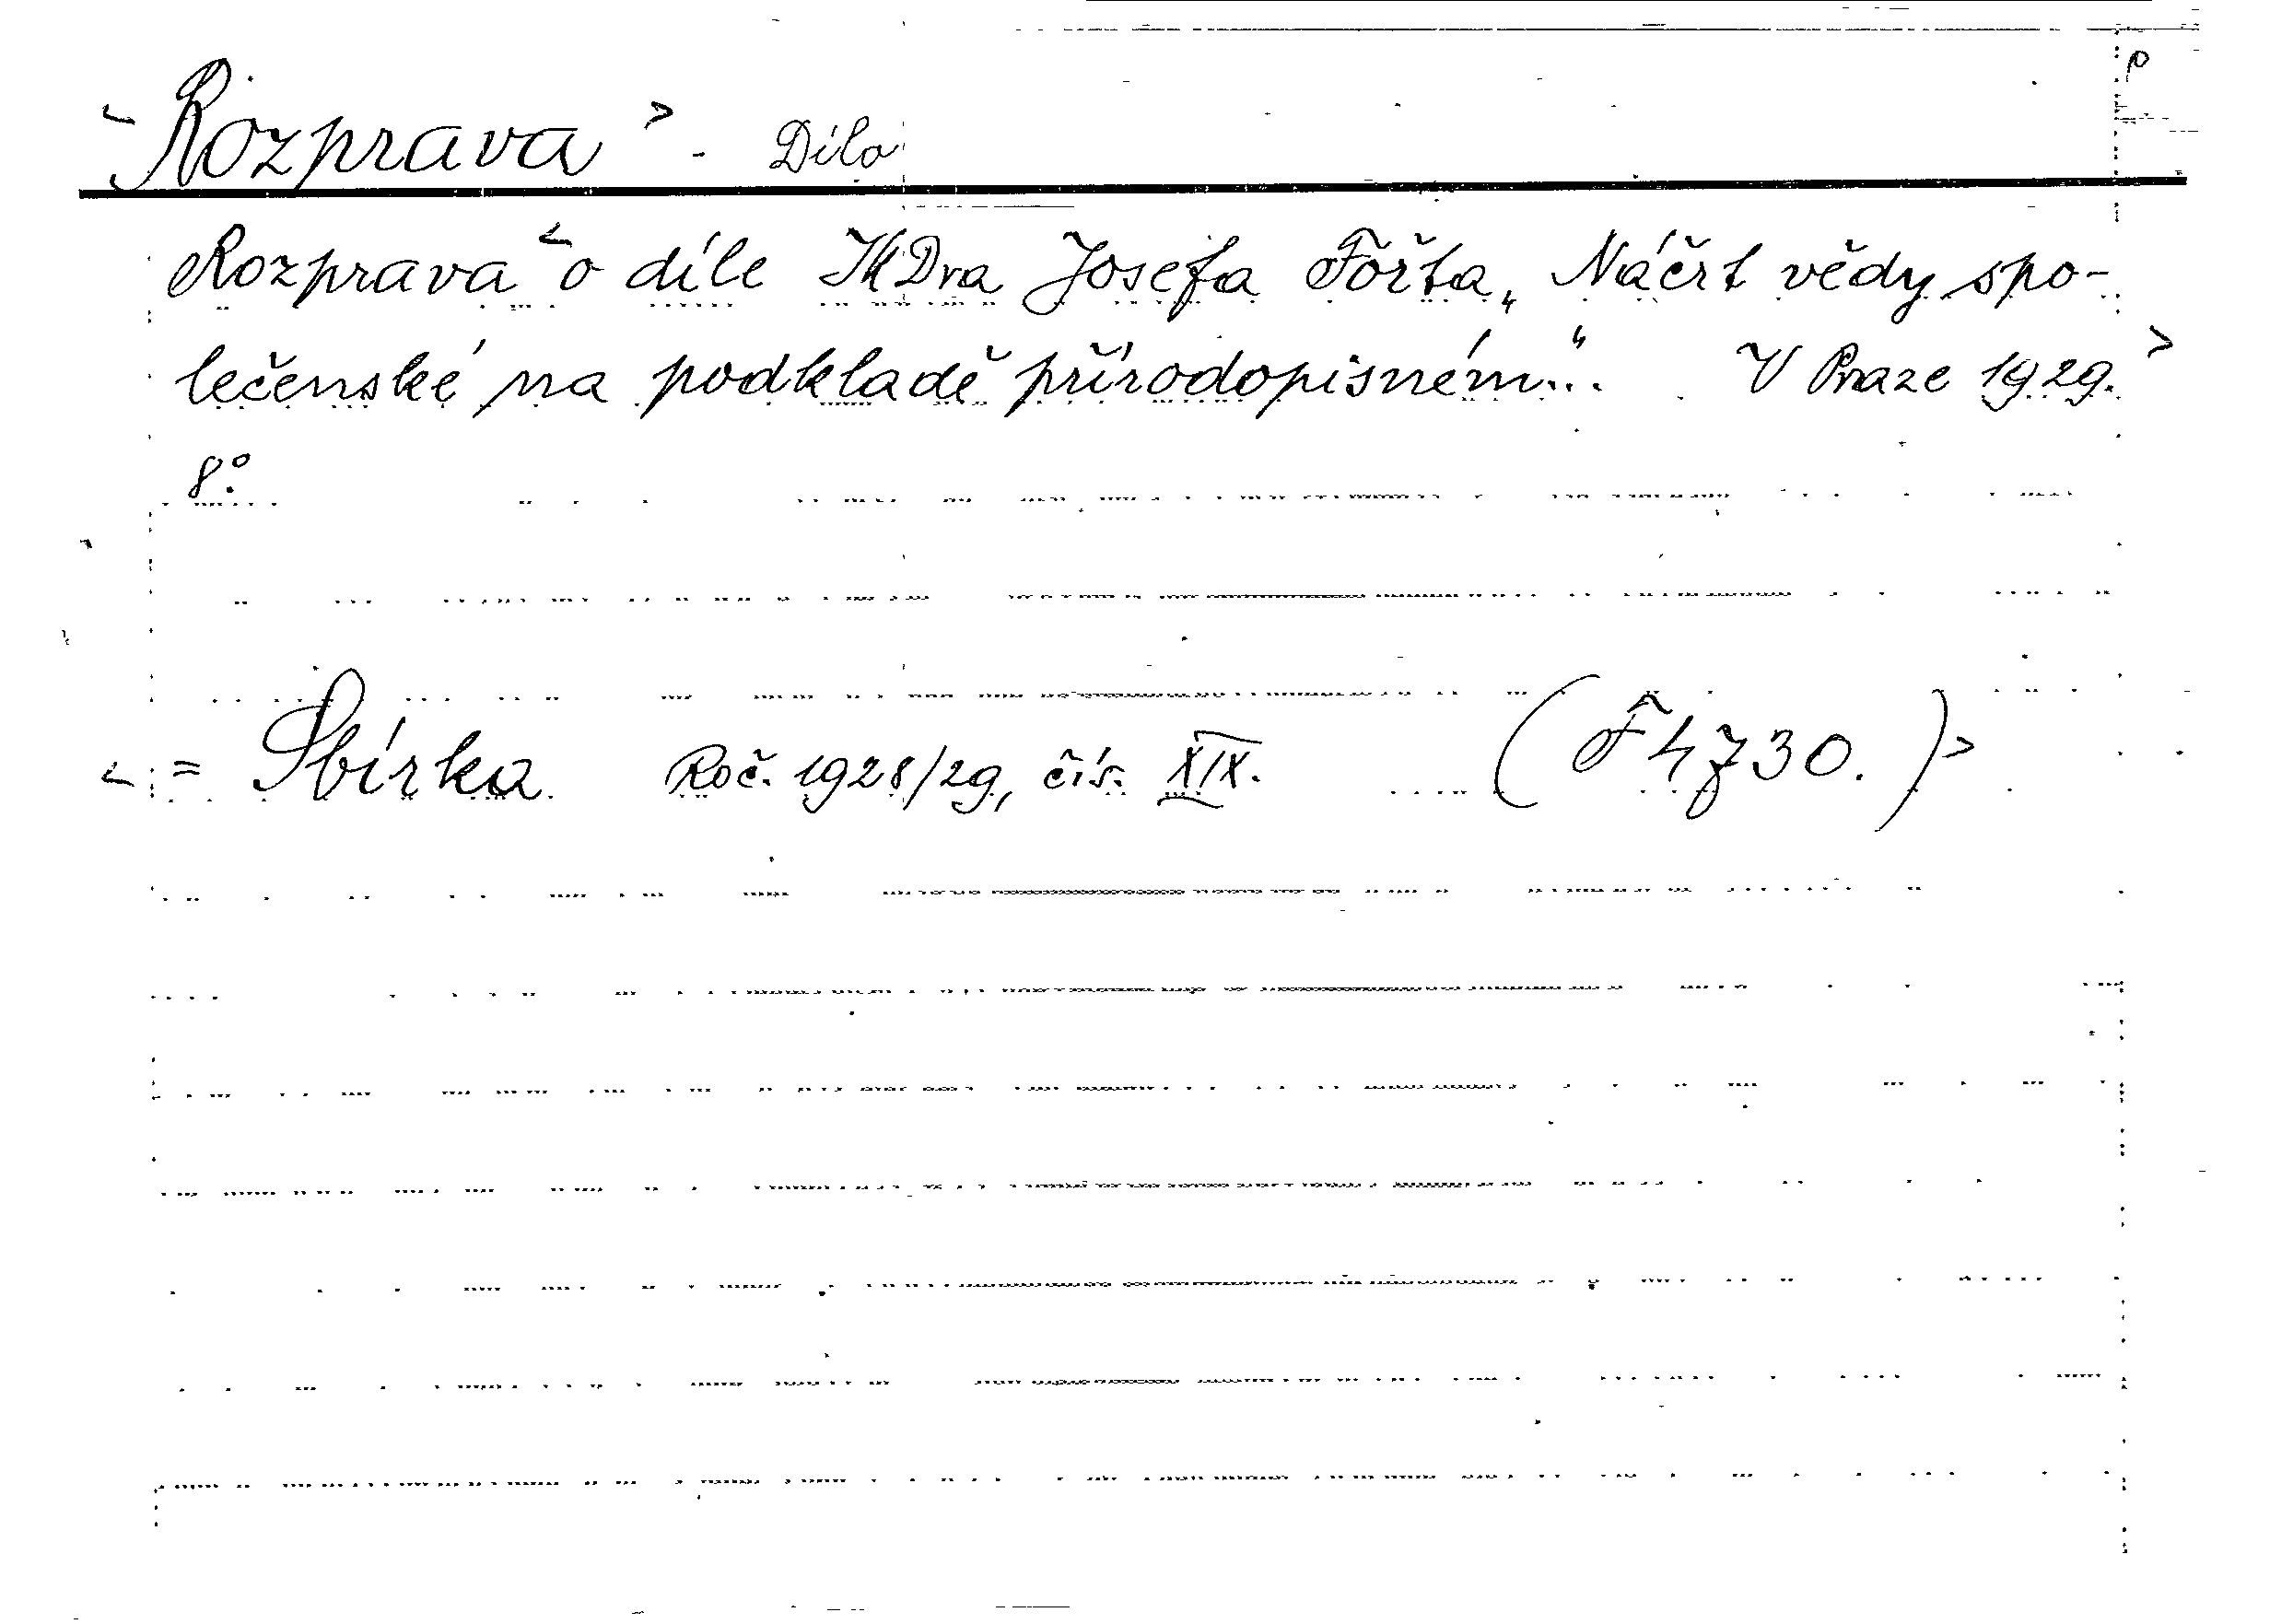 <Rozprava> - Dílo
Rozprava < o díle JUDra Josefa Fořta „Náčrt vědy spo-
lečenské na podkladě přírodopisném...“ V Praze 1929.>
8°.
< = Sbírka Roč. 1928/29, čís. XIX. (F 4730.)>